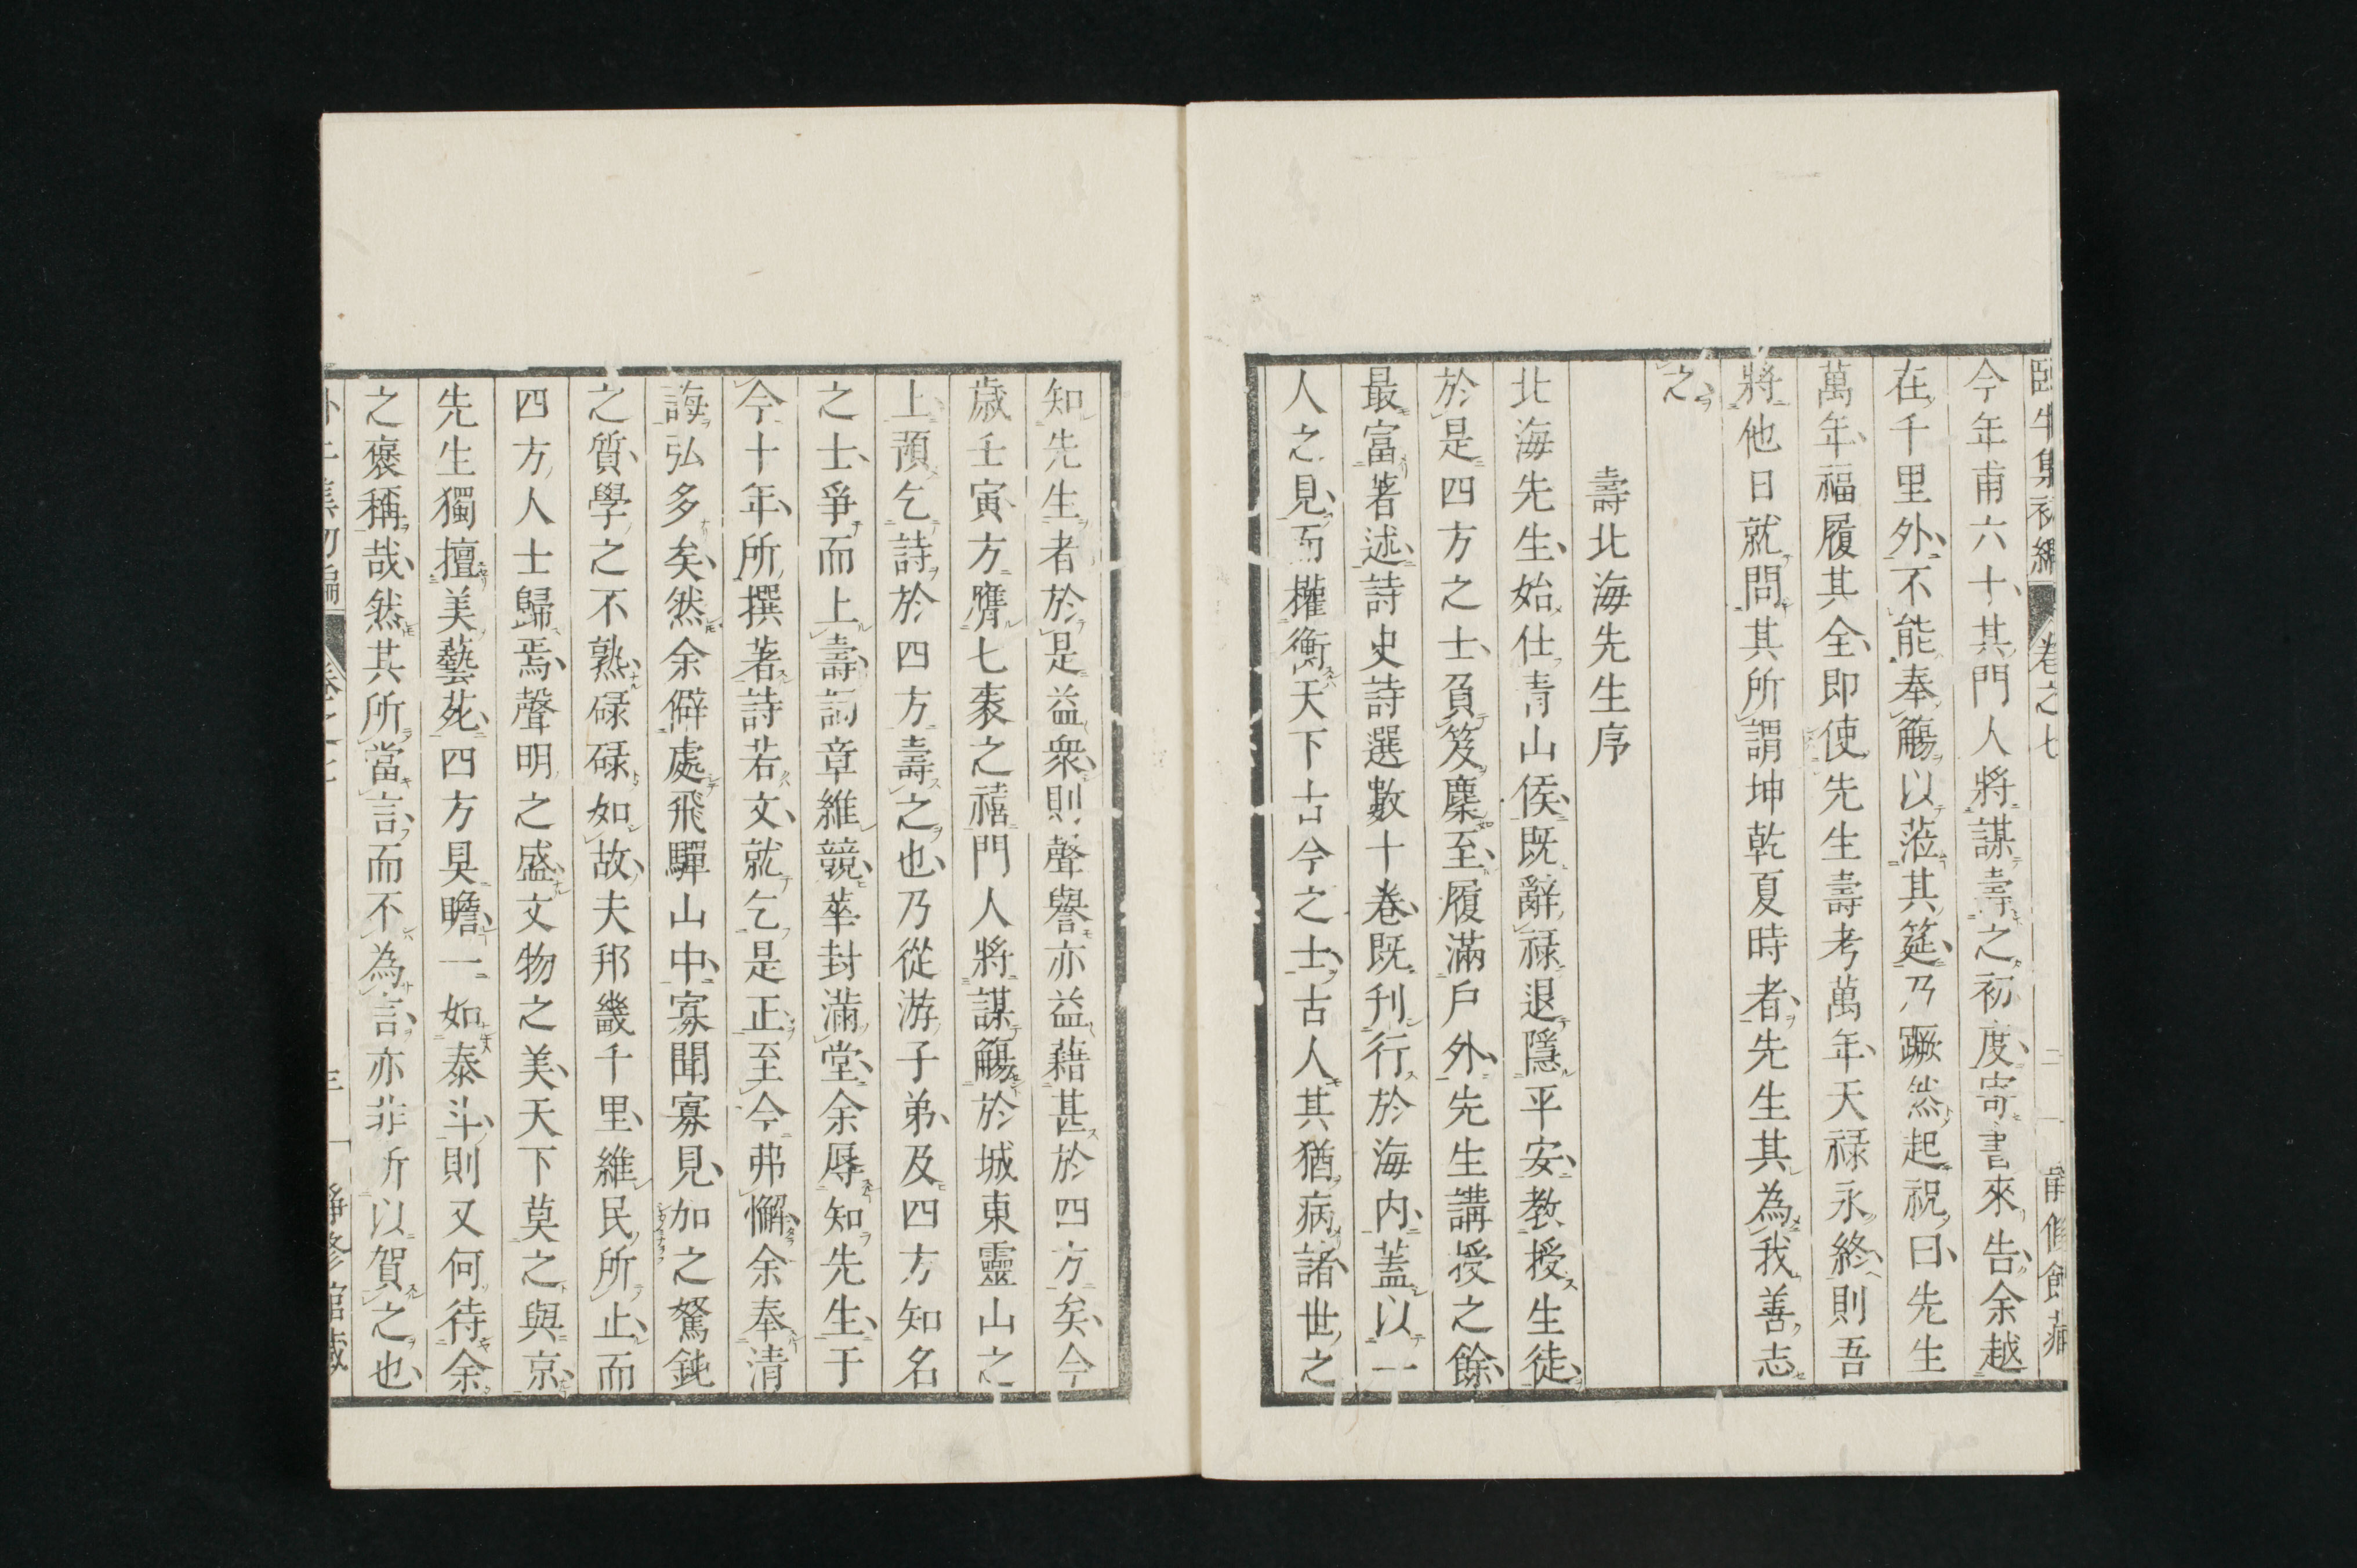 臥牛集初編 卷之七 二
今年甫六十其門人將謀壽之初度寄書來告余越
在千里外不能奉觴以蒞其筵乃蹶然起祝曰先生
萬年福履其全即使先生壽考萬年天祿永終則吾
將他日就問其所謂坤乾夏時者先生其為我善志
之
壽北海先生序
北海先生始仕青山侯既辭祿退隱平安教授生徒
於是四方之士負笈麇至履滿戶外先生講授之餘
最富著述詩史詩選數十卷既刊行於海內蓋以一
人之見而權衡天下古今之士古人其猶病諸世之
知先生者於是益衆則聲譽亦益藉甚於四方矣今
歲壬寅方膺七袠之禧門人將謀觴於城東靈山之
上預乞詩於四方壽之也乃從游子弟及四方知名
之士爭而上壽詞章維競華封滿堂余辱知先生于
今十年所撰著詩若文就乞是正至今弗懈余奉清
誨弘多矣然余僻處飛驒山中寡聞寡見加之駑鈍
之質學之不熟碌碌如故夫邦畿千里維民所止而
四方人士歸焉聲明之盛文物之美天下莫之與京
先生獨擅美藝苑四方具瞻一如泰斗則又何待余
之褒稱哉然其所當言而不為言亦非所以賀之也